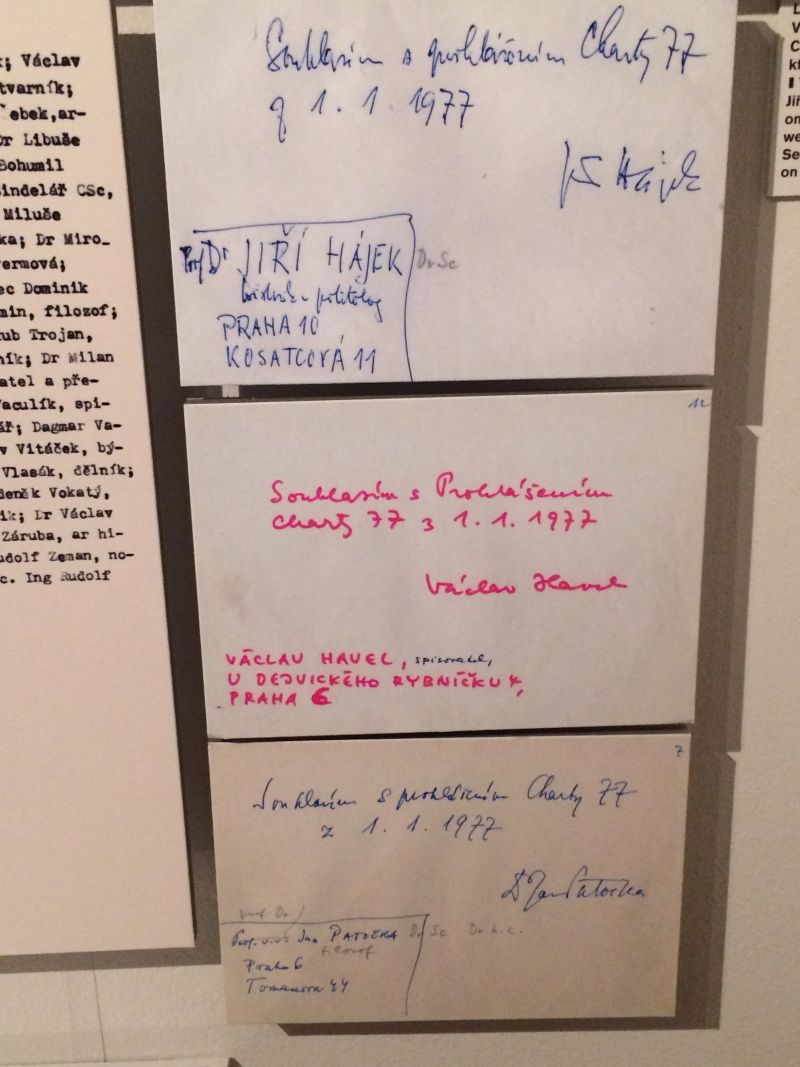 ; Václav
tvarník;
ebek,ar-
Dr Libuše
Bohumil
indelář CSc,
Miluše
ka; Dr Miro-
vermová;
ec Dominik
min, filozof;
ub Trojan,
ník; Dr Milan
atel a pře-
Vaculík, spi-
ář; Dagmar Va-
v Vitáček, bý-
Vlasák, dělník;
deněk Vokatý,
ik; Dr Václav
Záruba, ar hi-
udolf Zeman, no-
c. Ing Rudolf
Souhlasím s prohlášením Charty 77
z 1. 1. 1977
Jiří Hájek
Prof Dr JIŘÍ HÁJEK DrSc
historik politolog
PRAHA 10
KOSATCOVÁ 11
12
Souhlasím s Prohlášením
Charty 77 z 1. 1. 1977
Václav Havel
VÁCLAV HAVEL, spisovatel,
U DEJVICKÉHO RYBNÍČKU 4,
PRAHA 6
7
Souhlasím s prohlášením Charty 77
z 1. 1. 1977
Dr Jan Patočka
prof Dr
Prof. Jan PATOČKA DrSc Dr h.c.
filozof
Praha 6
Tomanova 44
L
V
C
kt
Jiř
on
we
Se
on